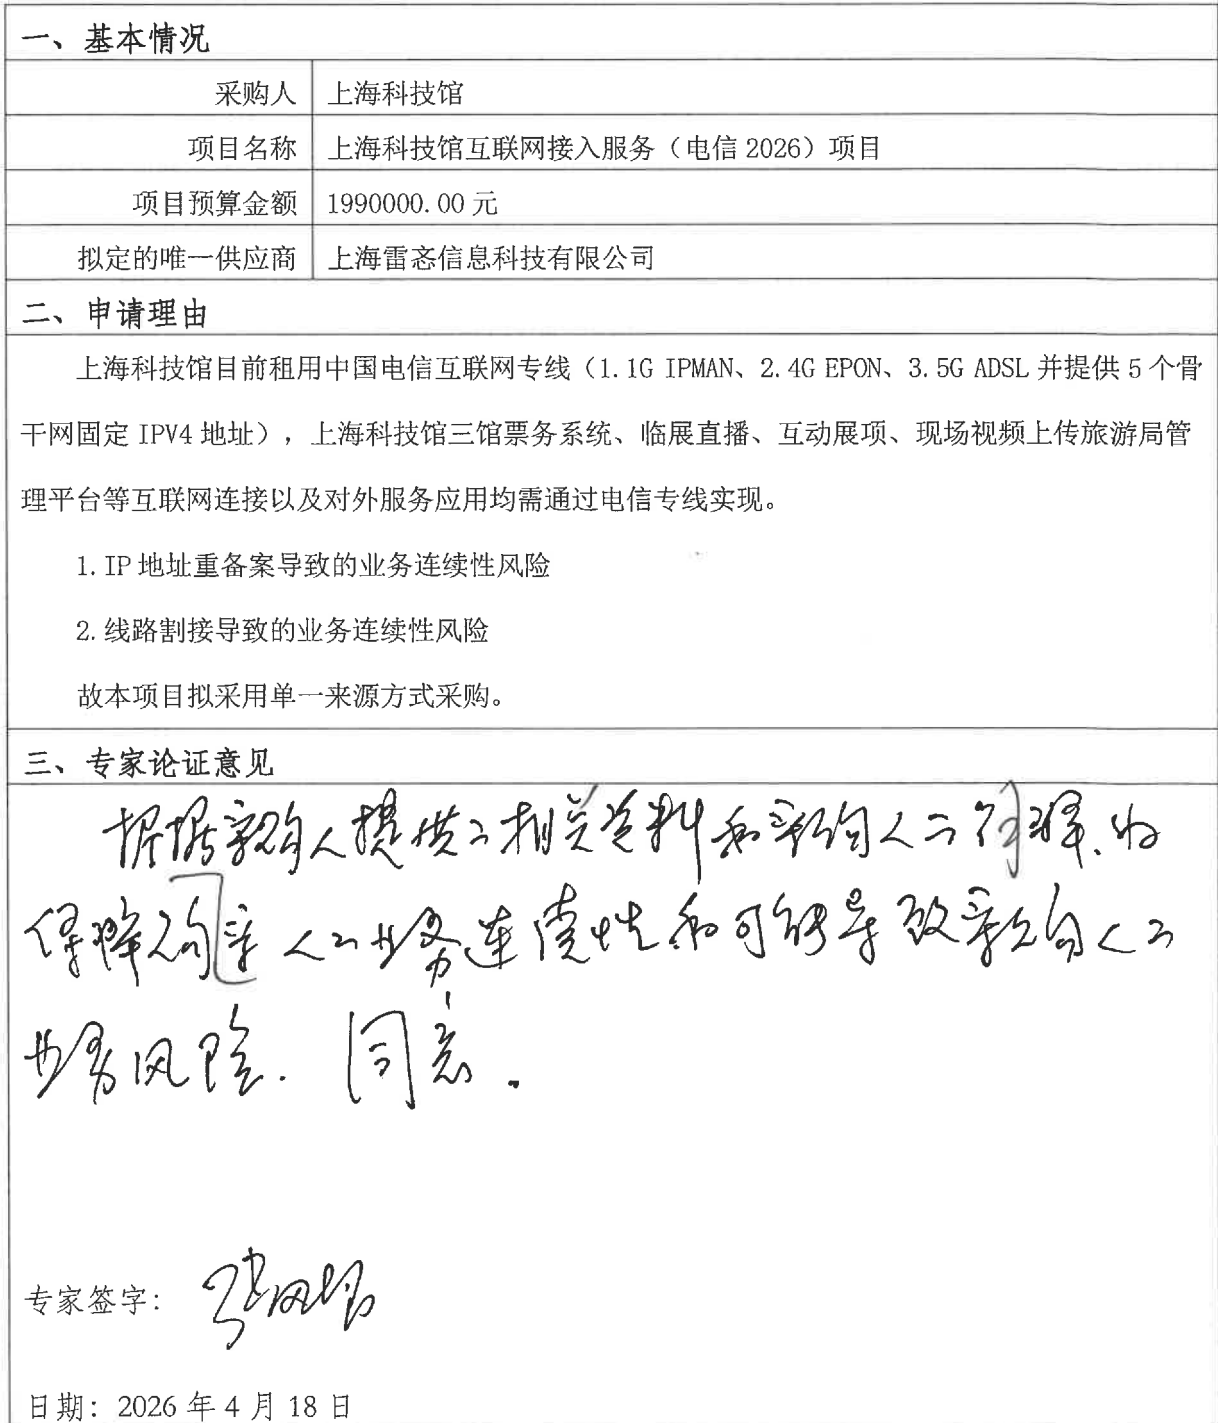 一、基本情况
采购人 上海科技馆
项目名称 上海科技馆互联网接入服务（电信2026）项目
项目预算金额 1990000.00元
拟定的唯一供应商 上海雷忞信息科技有限公司
二、申请理由
上海科技馆目前租用中国电信互联网专线（1.1G IPMAN、2.4G EPON、3.5G ADSL并提供5个骨
干网固定IPV4地址），上海科技馆三馆票务系统、临展直播、互动展项、现场视频上传旅游局管
理平台等互联网连接以及对外服务应用均需通过电信专线实现。
1.IP地址重备案导致的业务连续性风险
2.线路割接导致的业务连续性风险
故本项目拟采用单一来源方式采购。
三、专家论证意见
根据采购人提供的相关资料和采购人的解释，为
保障采购人的业务连续性和可能导致采购人的
业务风险. 同意.
专家签字：
日期：2026年4月18日